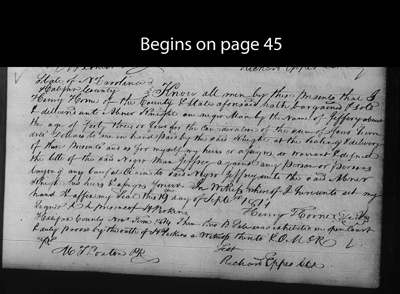 Begins on page 45
Richard Eppes
State of N Carolina
Halifax County } Know all men by these Presents that I
Henry Horn of the County & State aforesaid hath bargained & sold
& delivered unto Abner Knight one negro Man by the Name of Jeffery about
the age of for the Consideration of the sum of four hun
dred Dollars to me in hand paid by the said Knight at the Sealing & delivery
of these Presents and I for myself my heirs & assigns do warrant & defend
the title of the said Negro Man Jeffery against any person or Persons
laying any Lawful Claim to said Negro Jeffery unto the said Abner
Knight his heirs & assigns forever. In Witness whereof I hereunto set my
hand & affix my Seal this 19 day of Sept
Signed in presence of Perkins Henry Horn
Halifax County Nov Term Then this B Sale was exhibited in open Court
& duly proved by the oath of Perkins a Witness thereto & O M & R
Test
Eaton Richard Eppes Clk